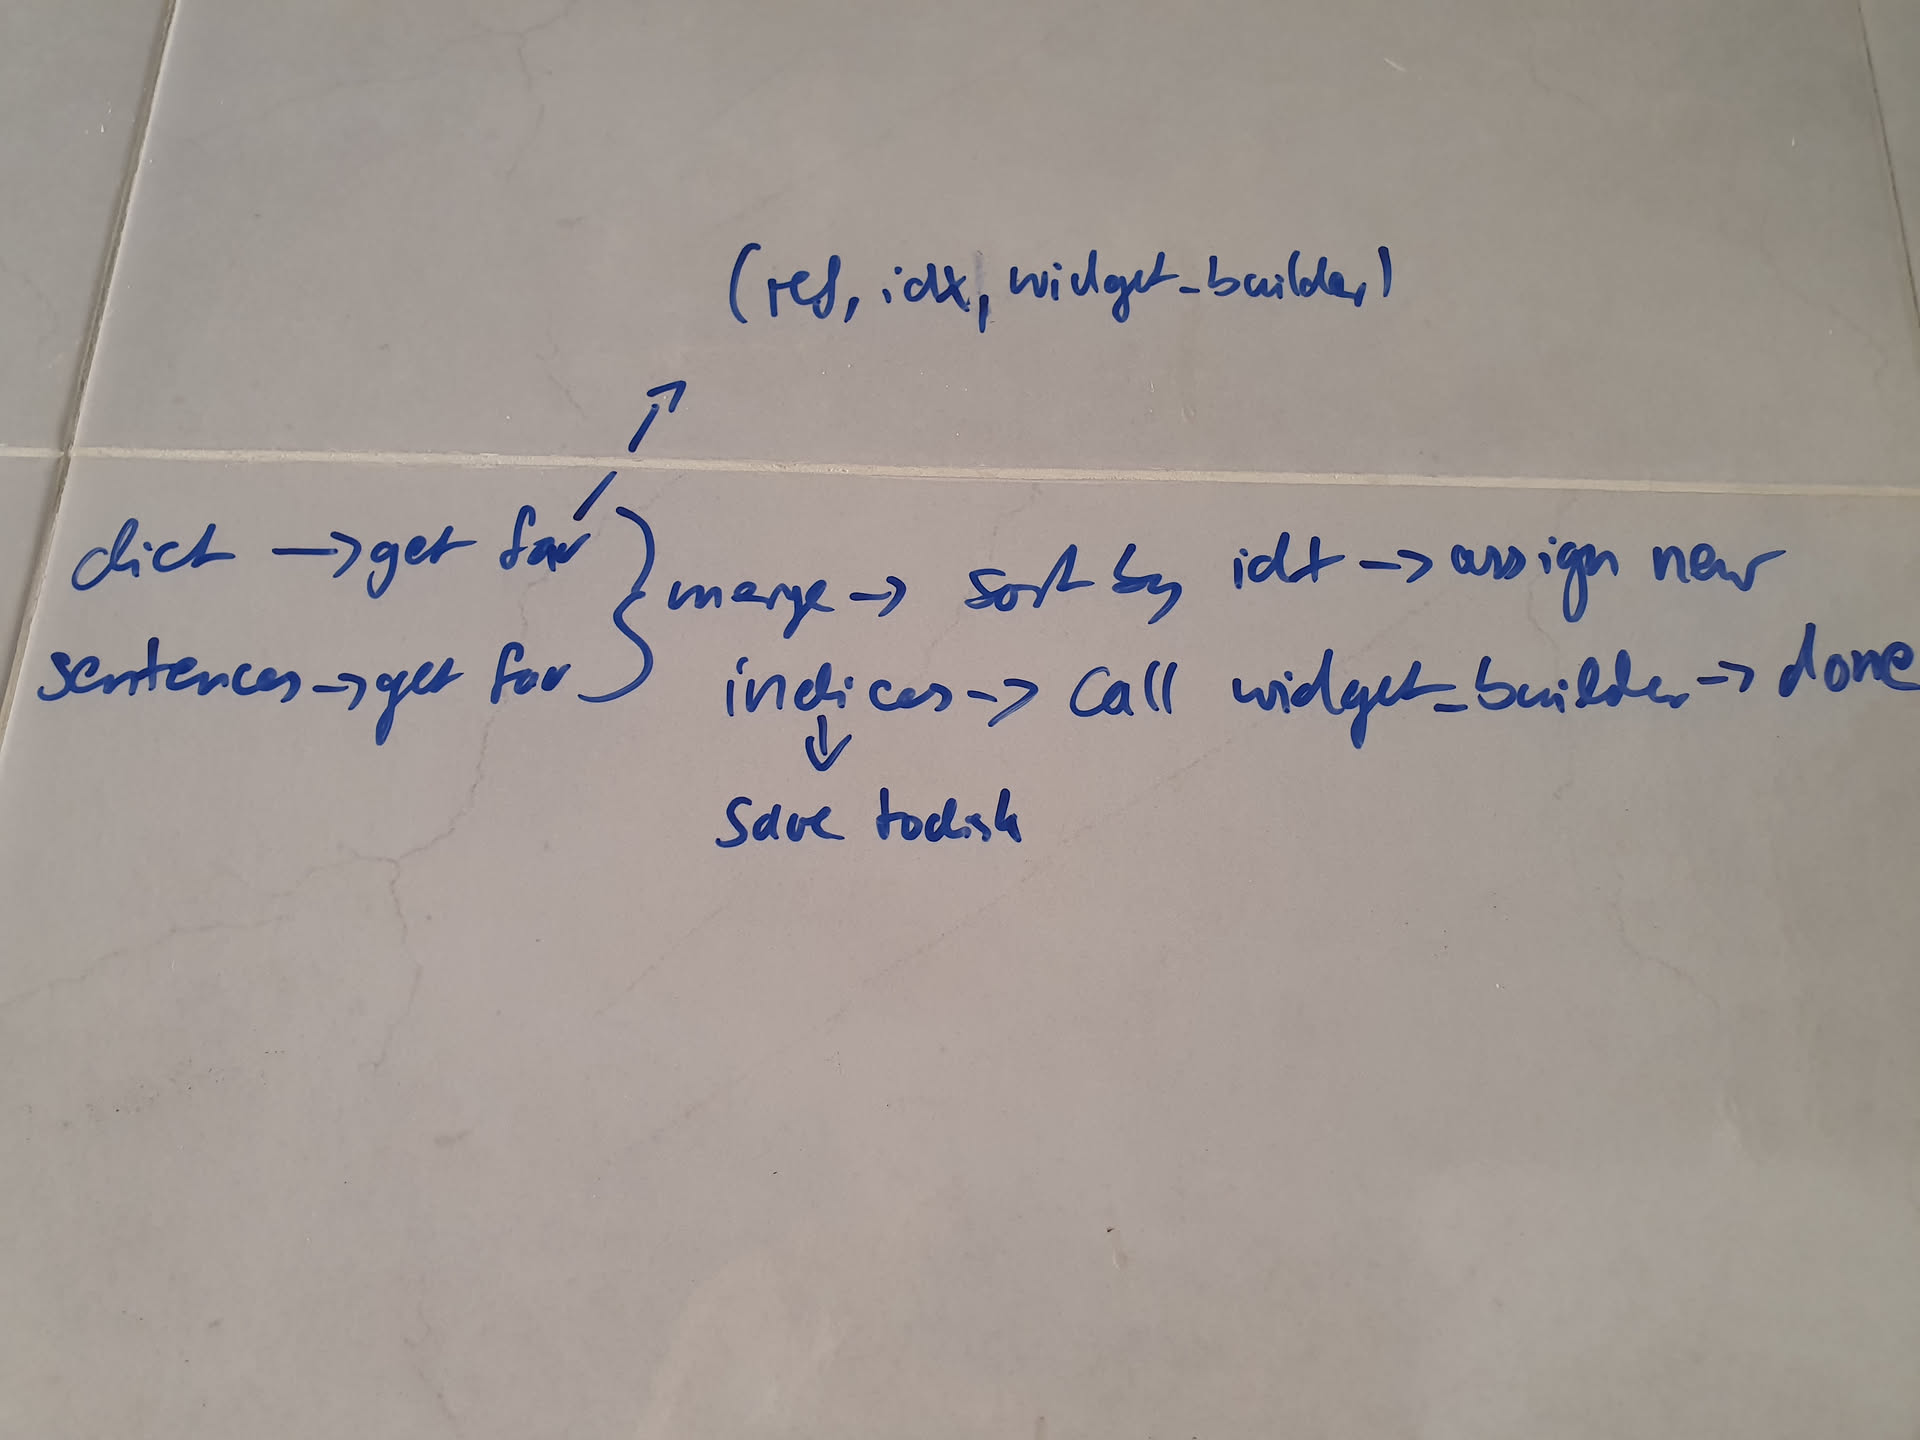 (ref, idx, widget_builder)
dict → get fav } merge → sort by idx → assign new
sentences → get fav indices → call widget_builder → done
↓
save to disk